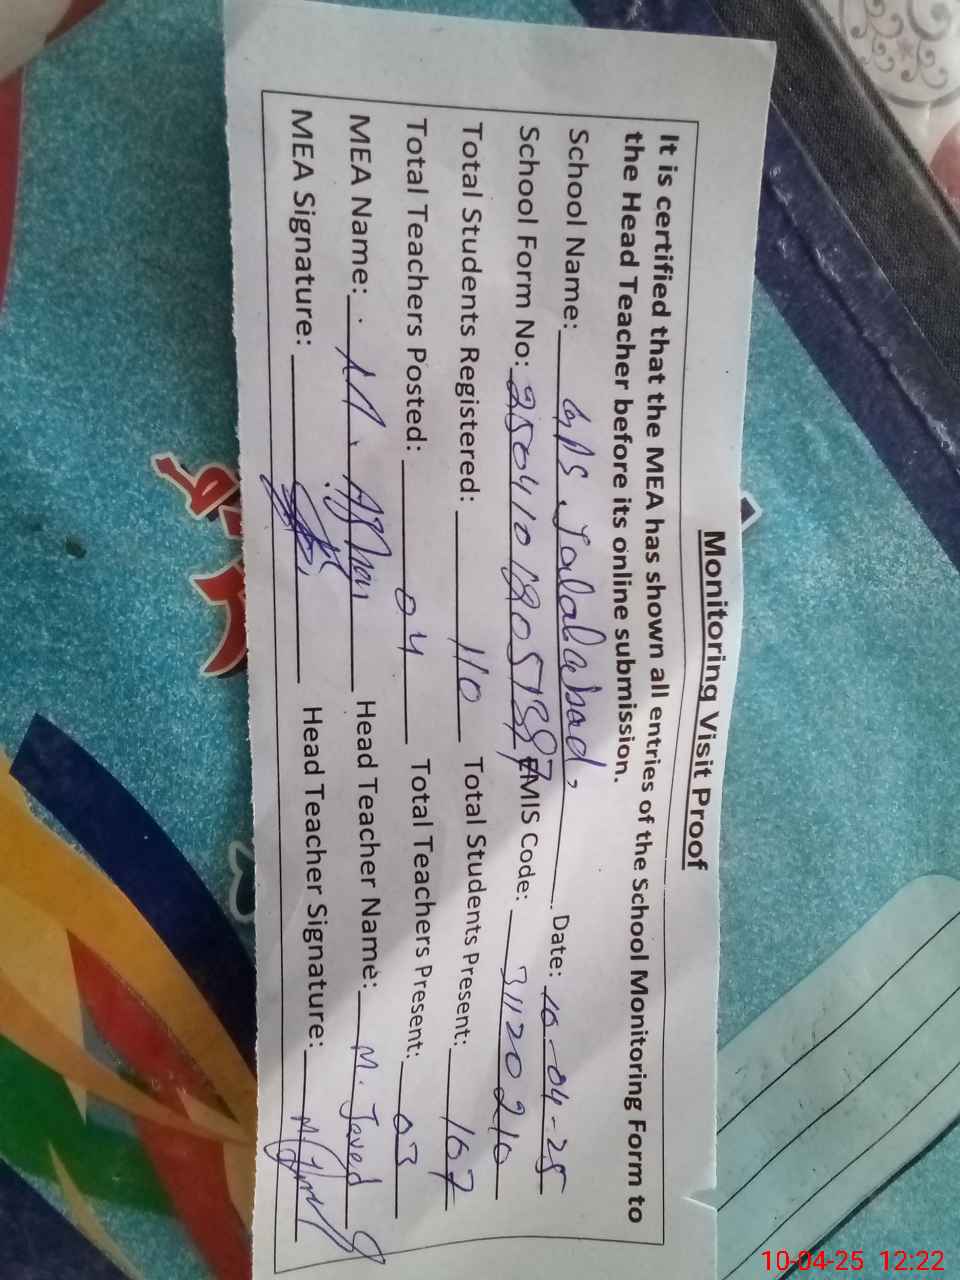 Monitoring Visit Proof
It is certified that the MEA has shown all entries of the School Monitoring Form to
the Head Teacher before its online submission.
School Name: GPS Jalalabad Date: 10-04-25
School Form No: EMIS Code: 31120210
Total Students Registered: 110 Total Students Present: 107
Total Teachers Posted: 04 Total Teachers Present: 03
MEA Name: M. Head Teacher Name: M. Javed
MEA Signature: Head Teacher Signature:
10-04-25 12:22